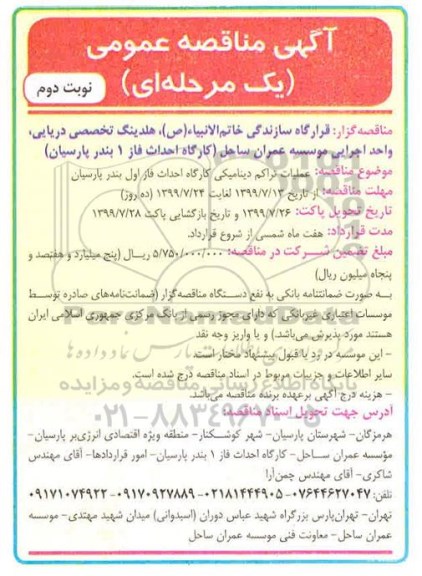 آگهی مناقصه عمومی
(یک مرحله‌ای)
نوبت دوم
مناقصه‌گزار: قرارگاه سازندگی خاتم‌الانبیاء(ص)، هلدینگ تخصصی دریایی،
واحد اجرایی موسسه عمران ساحل (کارگاه احداث فاز ۱ بندر پارسیان)
موضوع مناقصه: عملیات تراکم دینامیکی کارگاه احداث فاز اول بندر پارسیان
مهلت مناقصه: از تاریخ ۱۳۹۹/۷/۱۳ لغایت ۱۳۹۹/۷/۲۴ (ده روز)
تاریخ تحویل پاکت: ۱۳۹۹/۷/۲۶ و تاریخ بازگشایی پاکت ۱۳۹۹/۷/۲۸
مدت قرارداد: هفت ماه شمسی از شروع قرارداد.
مبلغ تضمین شرکت در مناقصه: ۵/۷۵۰/۰۰۰/۰۰۰ ریال (پنج میلیارد و هفتصد و
پنجاه میلیون ریال)
به صورت ضمانتنامه بانکی به نفع دستگاه مناقصه‌گزار (ضمانت‌نامه‌های صادره توسط
موسسات اعتباری غیربانکی که دارای مجوز رسمی از بانک مرکزی جمهوری اسلامی ایران
هستند مورد پذیرش می‌باشد.) و یا واریز وجه نقد
- این موسسه در رد یا قبول پیشنهاد مختار است.
سایر اطلاعات و جزییات مربوط در اسناد مناقصه درج شده است.
- هزینه درج آگهی برعهده برنده مناقصه می‌باشد.
آدرس جهت تحویل اسناد مناقصه:
هرمزگان- شهرستان پارسیان- شهر کوشکنار- منطقه ویژه اقتصادی انرژی‌بر پارسیان-
مؤسسه عمران ساحل- کارگاه احداث فاز ۱ بندر پارسیان- امور قراردادها- آقای مهندس
شاکری- آقای مهندس چمن‌آرا
تلفن: ۰۷۶۴۴۶۲۷۰۴۷-۰۲۱۸۱۴۴۴۹۰۵-۰۹۱۷۰۹۲۷۸۸۹-۰۹۱۷۱۰۷۴۹۲۲
تهران- تهران‌پارس بزرگراه شهید عباس دوران (استخر‌دوانی) میدان شهید مهتدی- موسسه
عمران ساحل- معاونت فنی موسسه عمران ساحل
ParsNamadData
پایگاه اطلاع رسانی مناقصه و مزایده
۰۲۱-۸۸۳۴۹۶۷۰-۵